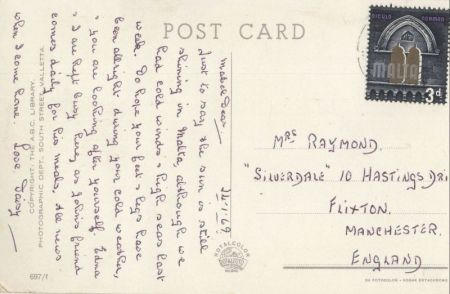 POST CARD
Mabel Dear 21-1-69
Just to say the sun is still
shining in Malta although we
had cold winds & high seas last
week. Do hope your feet & legs have
been allright during your cold weather,
& you are looking after yourself. Edna
& I are kept busy here, as John's friend
comes daily for his meals. All news
when I come home. Love Daisy
COPYRIGHT, THE A.B.C. LIBRARY,
PHOTOGRAPHIC DEPT., SOUTH STREET, VALLETTA.
697/1
SICULO NORMAN
MALTA
3d
MRS RAYMOND.
"SILVERDALE" 10 HASTINGS DRI
FLIXTON.
MANCHESTER.
ENGLAND
ROTALCOLOR